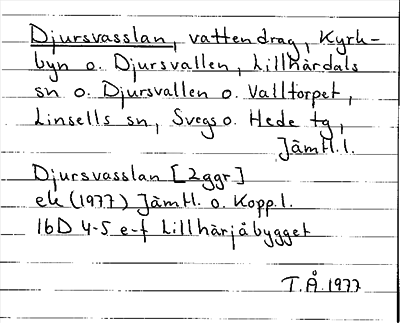 Djursvasslan, vattendrag, Kyrk-
byn o. Djursvallen, Lillhärdals
sn o. Djursvallen o. Valltorpet,
Linsells sn, Svegs o. Hede tg,
Jämtl. l.
Djursvasslan [2ggr]
ek (1977) Jämtl. o. Kopp. l.
16D 4-5 e-f Lillhärjåbygget
T.Å. 1977